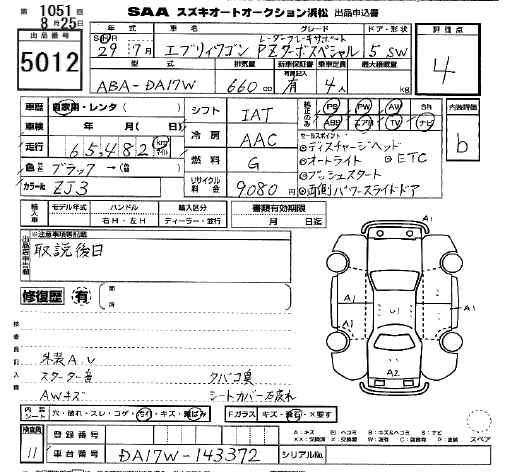 第 1051 回
8月25日
SAA スズキオートオークション浜松 出品申込書
出品番号
5012
年式 車名 グレード ドア・形状
29年7月 エブリィワゴン レーダーブレーキサポート PZターボスペシャル 5 SW
型式 排気量 新車保証書 乗車定員 最大積載量
ABA-DA17W 660cc 有 4人 kg
評価点
4
車歴 自家用・レンタ( )
車検 年 月 日
走行 65,482 km
色 ブラック→( )
カラー№ ZJ3
シフト IAT
冷房 AAC
燃料 G
リサイクル料金 9080円
純正のみ PS PW AW SR
ABS エアB TV ナビ
セールスポイント
ディスチャージヘッド
オートライト ETC
プッシュスタート
両側パワースライドドア
内装評価
b
輸入車 モデル年式 ハンドル 輸入区分
年 右H・左H ディーラー・並行
書類有効期限
月 日迄
※注意事項等記載
取説後日
修復歴 有
箇所
外装A.U
スターター番 タバコ臭
AWキズ シートカバー
内装シート 穴・破れ・スレ・コゲ・汚れ・キズ・
Fガラス キズ・飛石・×要す
検査員 11
登録番号
車台番号 DA17W-143372 シリアル№
A1
A1 A1
U1
A1 A1
A2
スペア